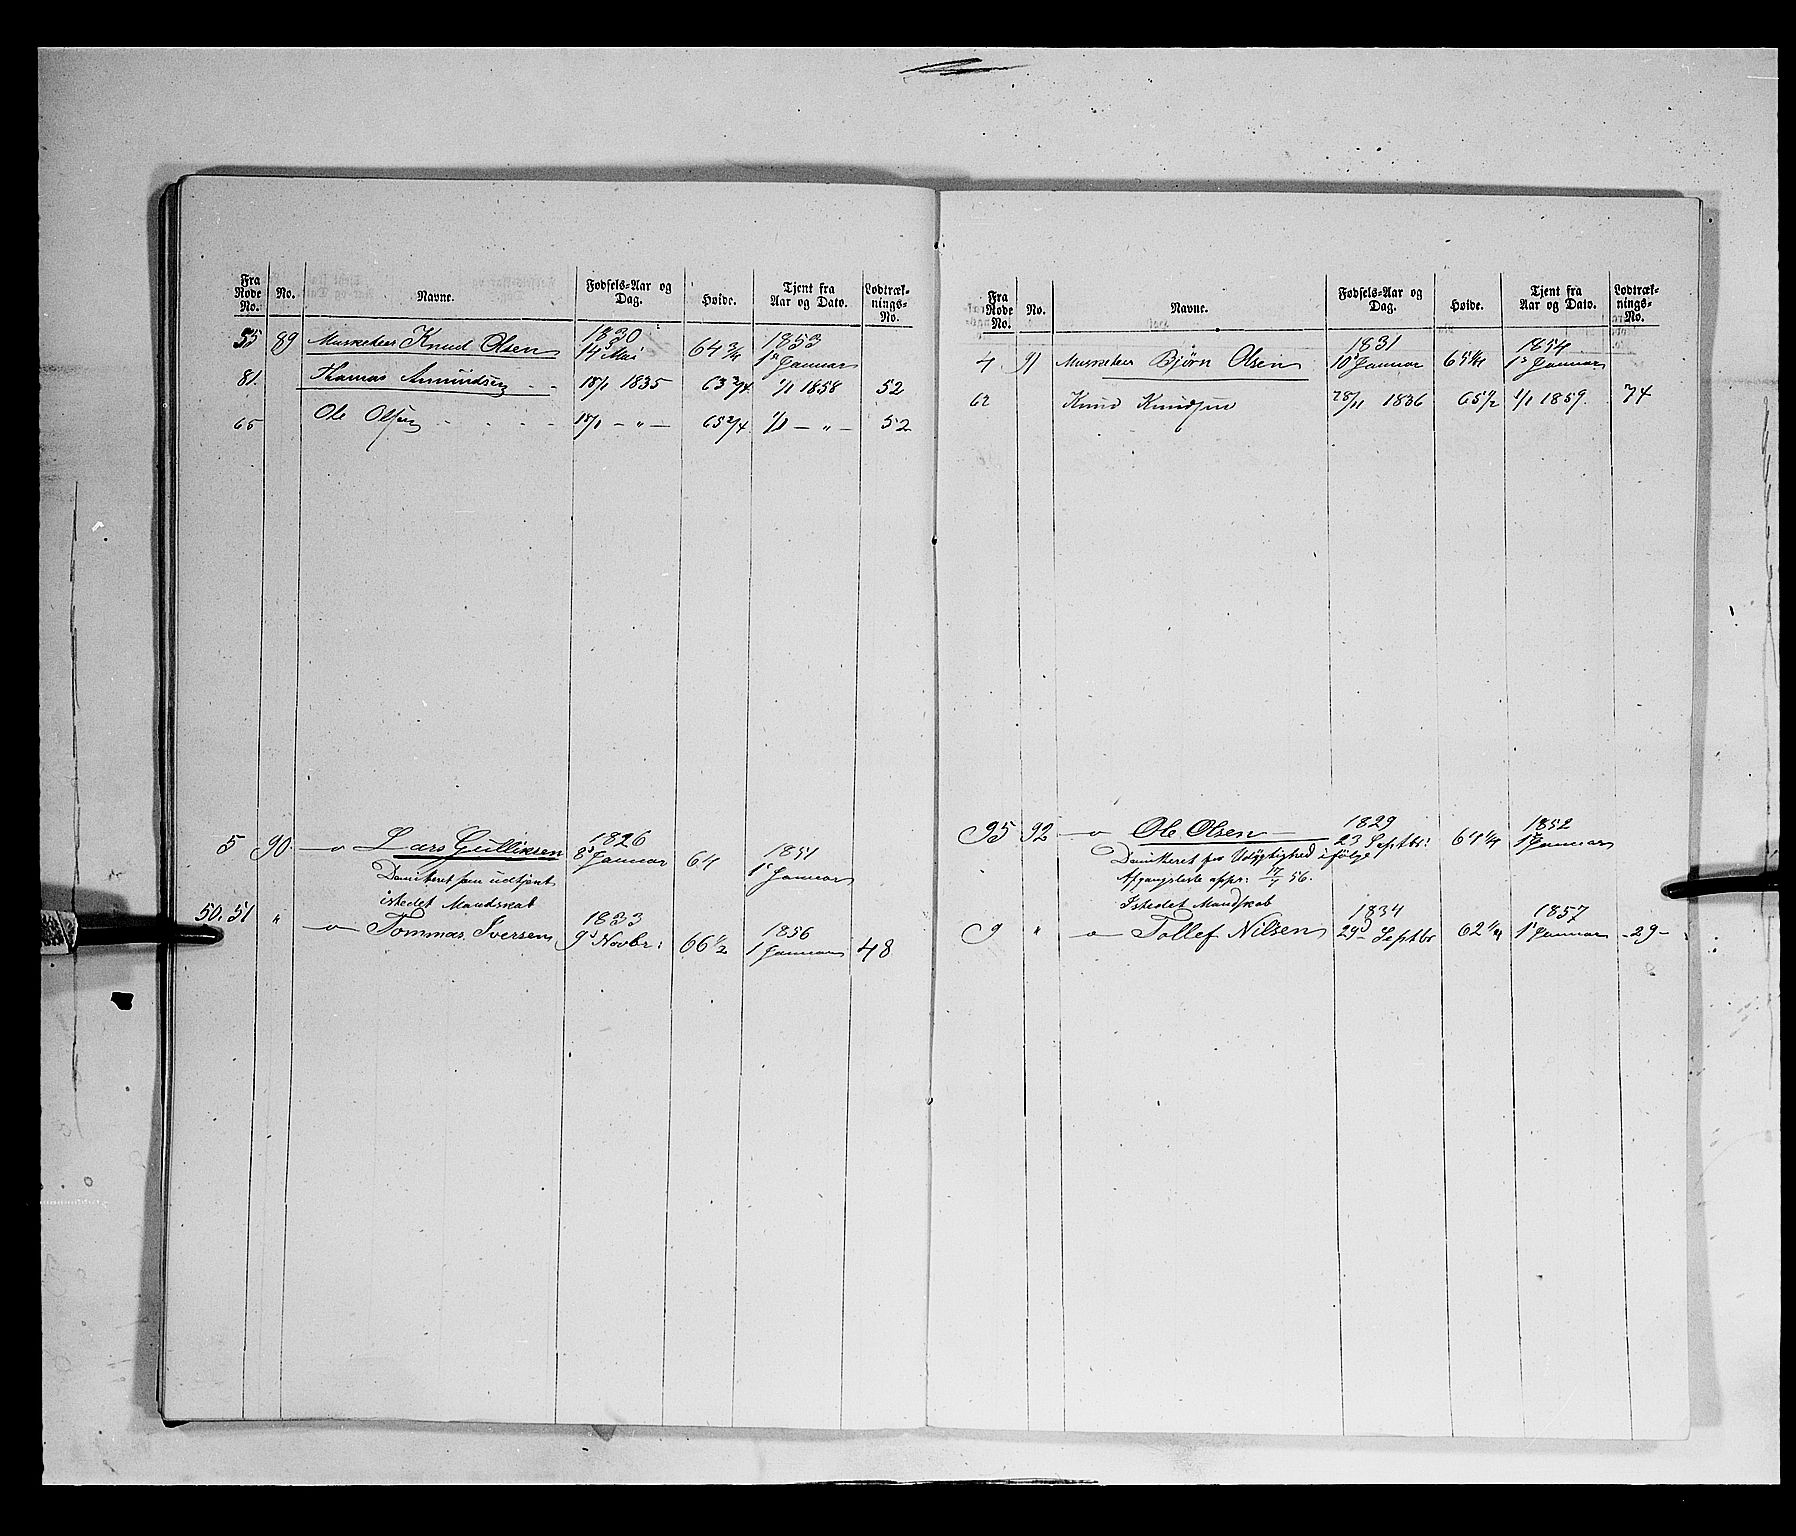 Fra Rode No. No. Navne. Fødsels-Aar og Dag. Høide. Tjent fra Aar og Dato. Lodtræk-nings-No.
55 89 Musketeer Knud Olsen 1830 14 Mai 64 3/4 1853 1ste Januar
81. Thomas Amundsen - - 18/1 1835 63 3/4 1/1 1858 52
65 Ole Olsen - - - - 18/1 — „ — 65 2/4 1/1 — „ — 52
5 90 —o— Lars Gulliksen 1826 8de Januar 64 1851 1ste Januar
Demitteret som udtjent
istedet Mandskab
50. 51 „ —o— Tommas Iversen 1833 9de Novbr: 66 1/2 1856 1 Januar 48
Fra Rode No. No. Navne. Fødsels-Aar og Dag. Høide. Tjent fra Aar og Dato. Lodtræk-nings-No.
4 91 Musketeer Bjørn Olsen 1831 10de Januar 65 1/4 1854 1ste Januar
62 Knud Knudsen 28/11 1836 65 1/2 1/1 1859. 74
95 92 —o— Ole Olsen — 1829 23 Septbr: 64 1/4 1852 1ste Januar
Demitteret for Udygtighed ifølge
Afgangsliste appr: 56.
Istedet Mandskab
9 „ —o— Tollef Nilsen 1834 29de Septbr 62 1/4 1857 1ste Januar -29-